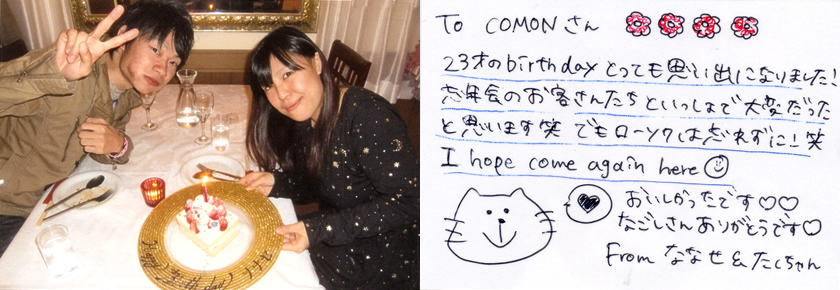 To COMONさん
23才のbirthdayとっても思い出になりました!
忘年会のお客さんたちといっしょで大変だった
と思います笑 でもローソクは忘れずに!笑
I hope come again here
おいしかったです♡♡
なごしさんありがとうです♡
From ななせ&たくちゃん
Happy Birthday!